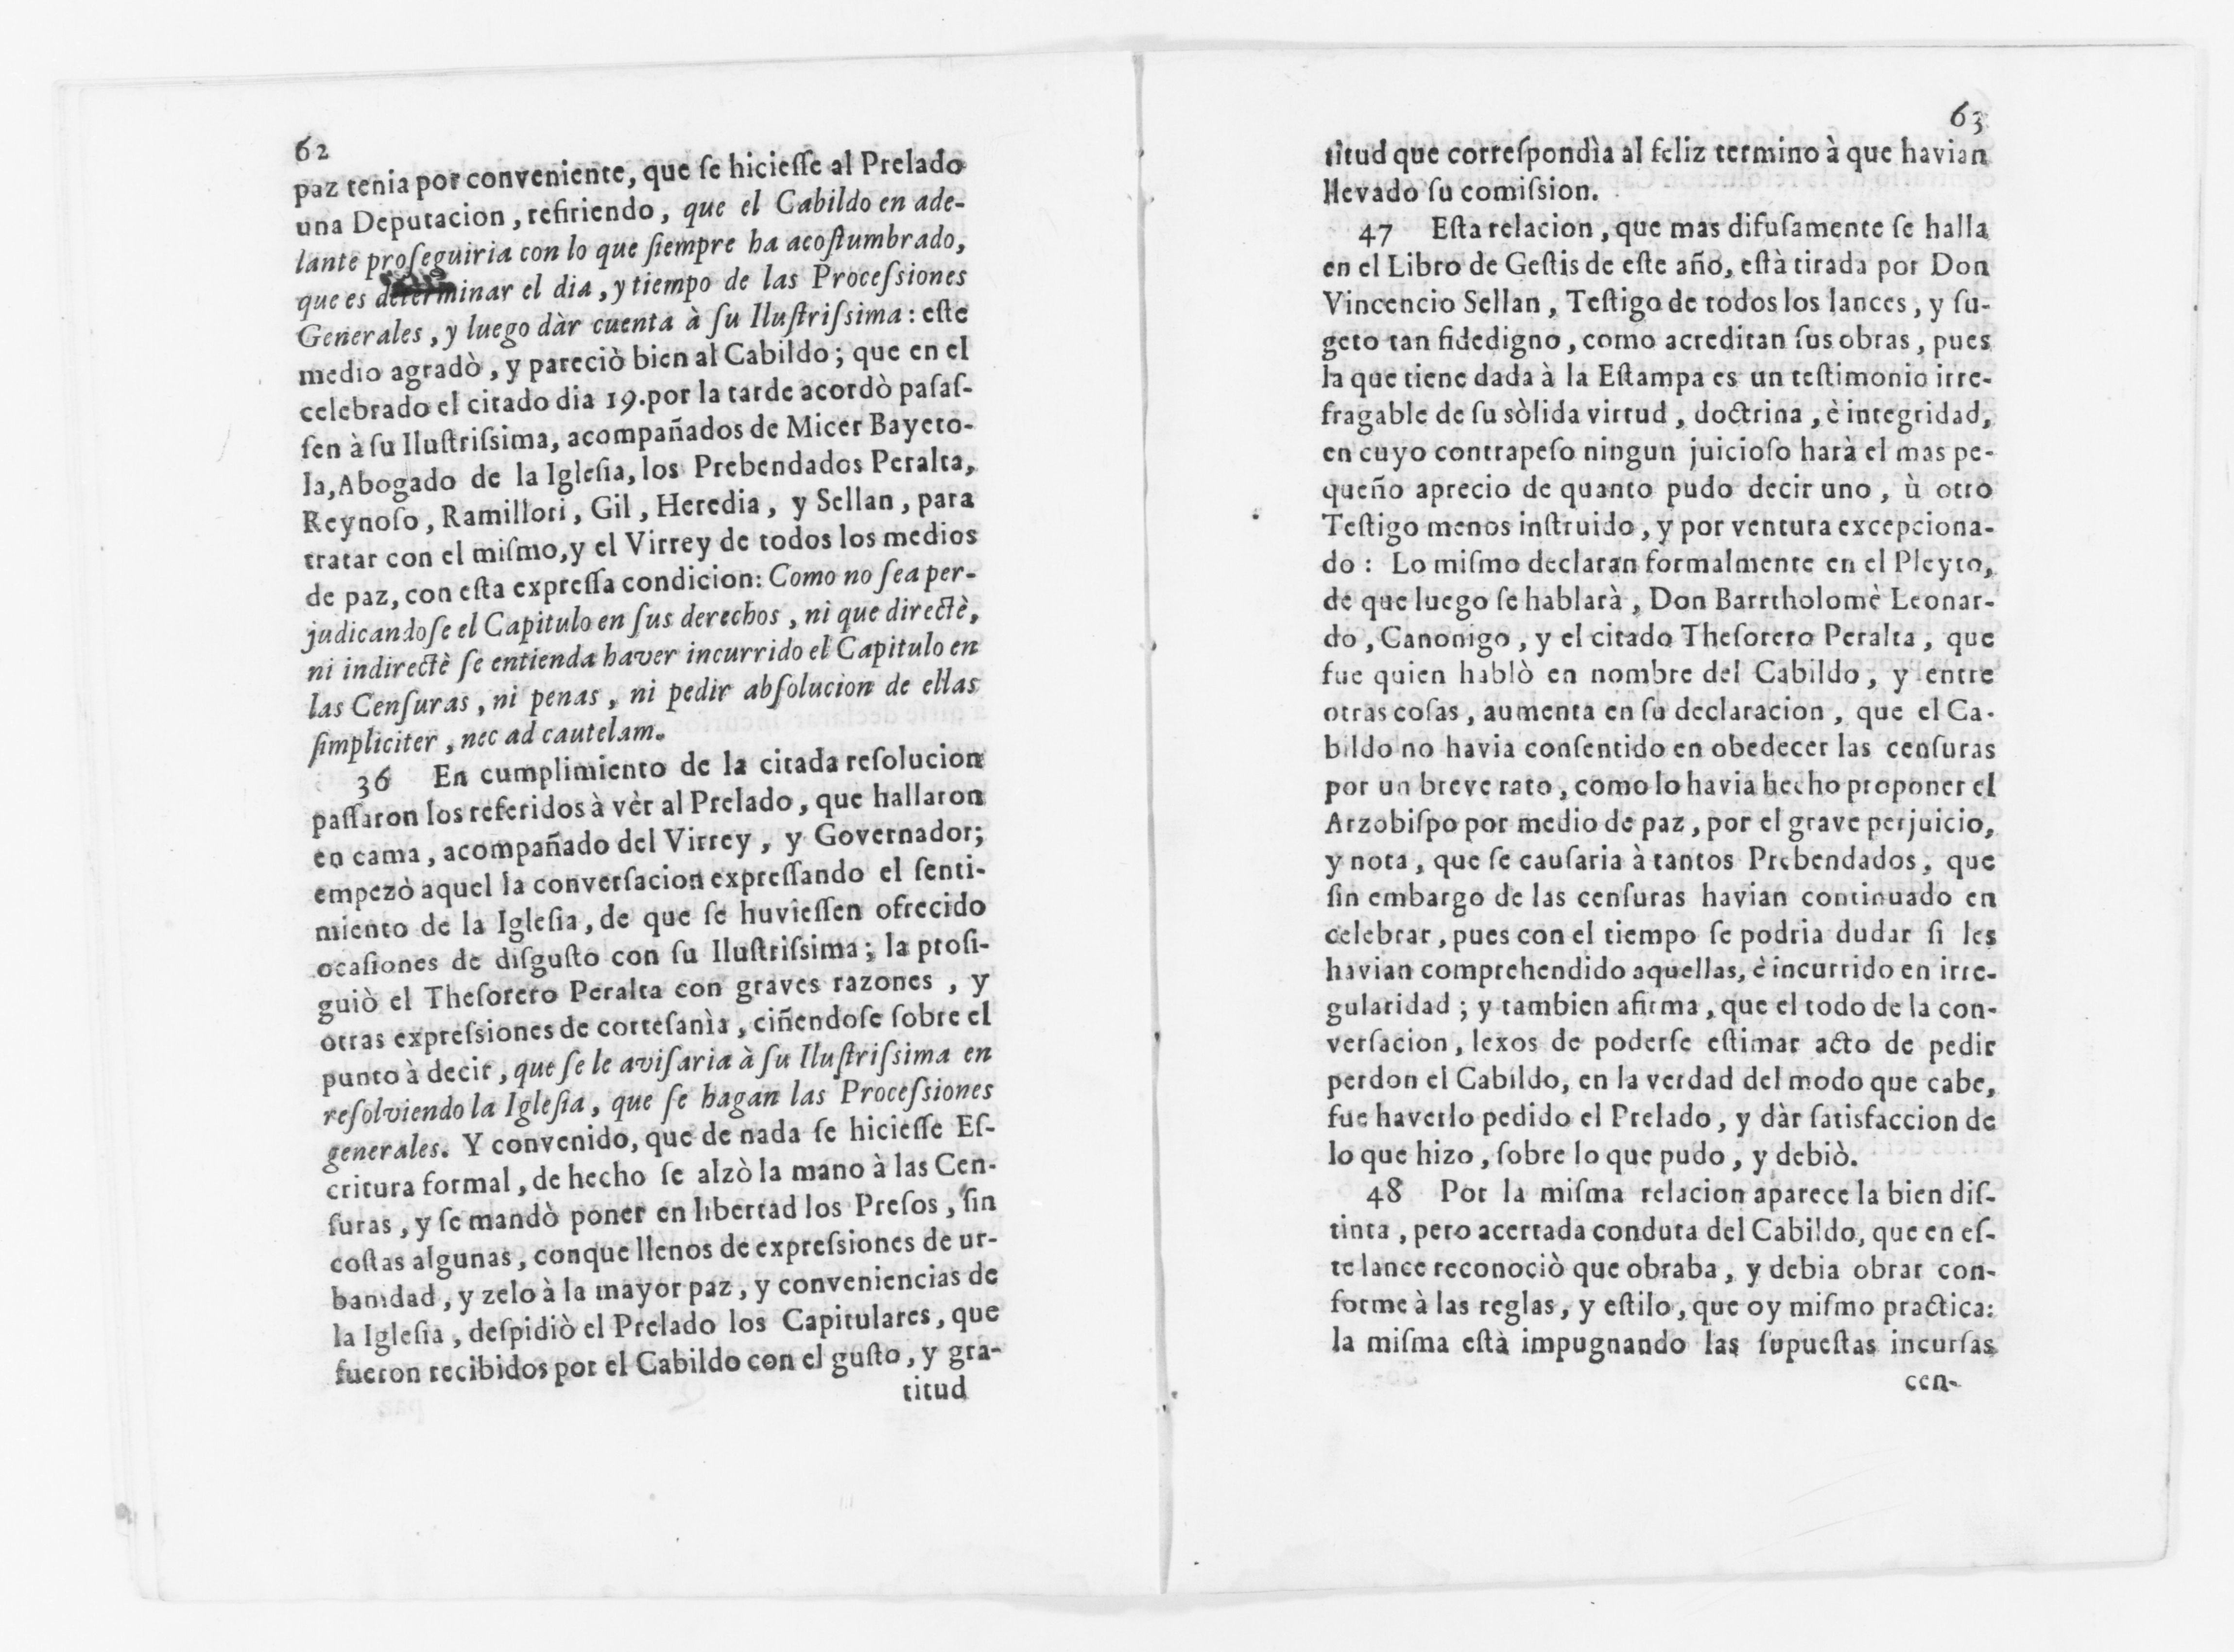 62
paz tenia por conveniente, que ſe hicieſſe al Prelado
una Deputacion, refiriendo, que el Cabildo en ade-
lante proſeguiria con lo que ſiempre ha acoſtumbrado,
que es determinar el dia, y tiempo de las Proceſsiones
Generales, y luego dàr cuenta à ſu Iluſtriſsima: eſte
medio agradò, y pareciò bien al Cabildo; que en el
celebrado el citado dia 19. por la tarde acordò paſaſ-
ſen à ſu Iluſtriſsima, acompañados de Micer Bayeto-
la, Abogado de la Igleſia, los Prebendados Peralta,
Reynoſo, Ramillori, Gil, Heredia, y Sellan, para
tratar con el miſmo, y el Virrey de todos los medios
de paz, con eſta expreſſa condicion: Como no ſea per-
judicandoſe el Capitulo en ſus derechos, ni que directè,
ni indirectè ſe entienda haver incurrido el Capitulo en
las Cenſuras, ni penas, ni pedir abſolucion de ellas
ſimpliciter, nec ad cautelam.
36 En cumplimiento de la citada reſolucion
paſſaron los referidos à vèr al Prelado, que hallaron
en cama, acompañado del Virrey, y Governador;
empezò aquel la converſacion expreſſando el ſenti-
miento de la Igleſia, de que ſe huvieſſen ofrecido
ocaſiones de diſguſto con ſu Iluſtriſsima; la proſi-
guiò el Theſorero Peralta con graves razones, y
otras expreſsiones de corteſanìa, ciñendoſe ſobre el
punto à decir, que ſe le aviſaria à ſu Iluſtriſsima en
reſolviendo la Igleſia, que ſe hagan las Proceſsiones
generales. Y convenido, que de nada ſe hicieſſe Eſ-
critura formal, de hecho ſe alzò la mano à las Cen-
ſuras, y ſe mandò poner en libertad los Preſos, ſin
coſtas algunas, conque llenos de expreſsiones de ur-
banidad, y zelo à la mayor paz, y conveniencias de
la Igleſia, deſpidiò el Prelado los Capitulares, que
fueron recibidos por el Cabildo con el guſto, y gra-
titud
63
titud que correſpondìa al feliz termino à que havian
llevado ſu comiſsion.
47 Eſta relacion, que mas difuſamente ſe halla
en el Libro de Geſtis de eſte año, eſtà tirada por Don
Vincencio Sellan, Teſtigo de todos los lances, y ſu-
geto tan fidedigno, como acreditan ſus obras, pues
la que tiene dada à la Eſtampa es un teſtimonio irre-
fragable de ſu sòlida virtud, doctrina, è integridad,
en cuyo contrapeſo ningun juicioſo harà el mas pe-
queño aprecio de quanto pudo decir uno, ù otro
Teſtigo menos inſtruido, y por ventura excepciona-
do: Lo miſmo declaran formalmente en el Pleyto,
de que luego ſe hablarà, Don Barrtholomè Leonar-
do, Canonigo, y el citado Theſorero Peralta, que
fue quien hablò en nombre del Cabildo, y entre
otras coſas, aumenta en ſu declaracion, que el Ca-
bildo no havia conſentido en obedecer las cenſuras
por un breve rato, como lo havia hecho proponer el
Arzobiſpo por medio de paz, por el grave perjuicio,
y nota, que ſe cauſaria à tantos Prebendados, que
ſin embargo de las cenſuras havian continuado en
celebrar, pues con el tiempo ſe podria dudar ſi les
havian comprehendido aquellas, è incurrido en irre-
gularidad; y tambien afirma, que el todo de la con-
verſacion, lexos de poderſe eſtimar acto de pedir
perdon el Cabildo, en la verdad del modo que cabe,
fue haverlo pedido el Prelado, y dàr ſatisfaccion de
lo que hizo, ſobre lo que pudo, y debiò.
48 Por la miſma relacion aparece la bien diſ-
tinta, pero acertada conduta del Cabildo, que en eſ-
te lance reconociò que obraba, y debia obrar con-
forme à las reglas, y eſtilo, que oy miſmo practica:
la miſma eſtà impugnando las ſupueſtas incurſas
cen-